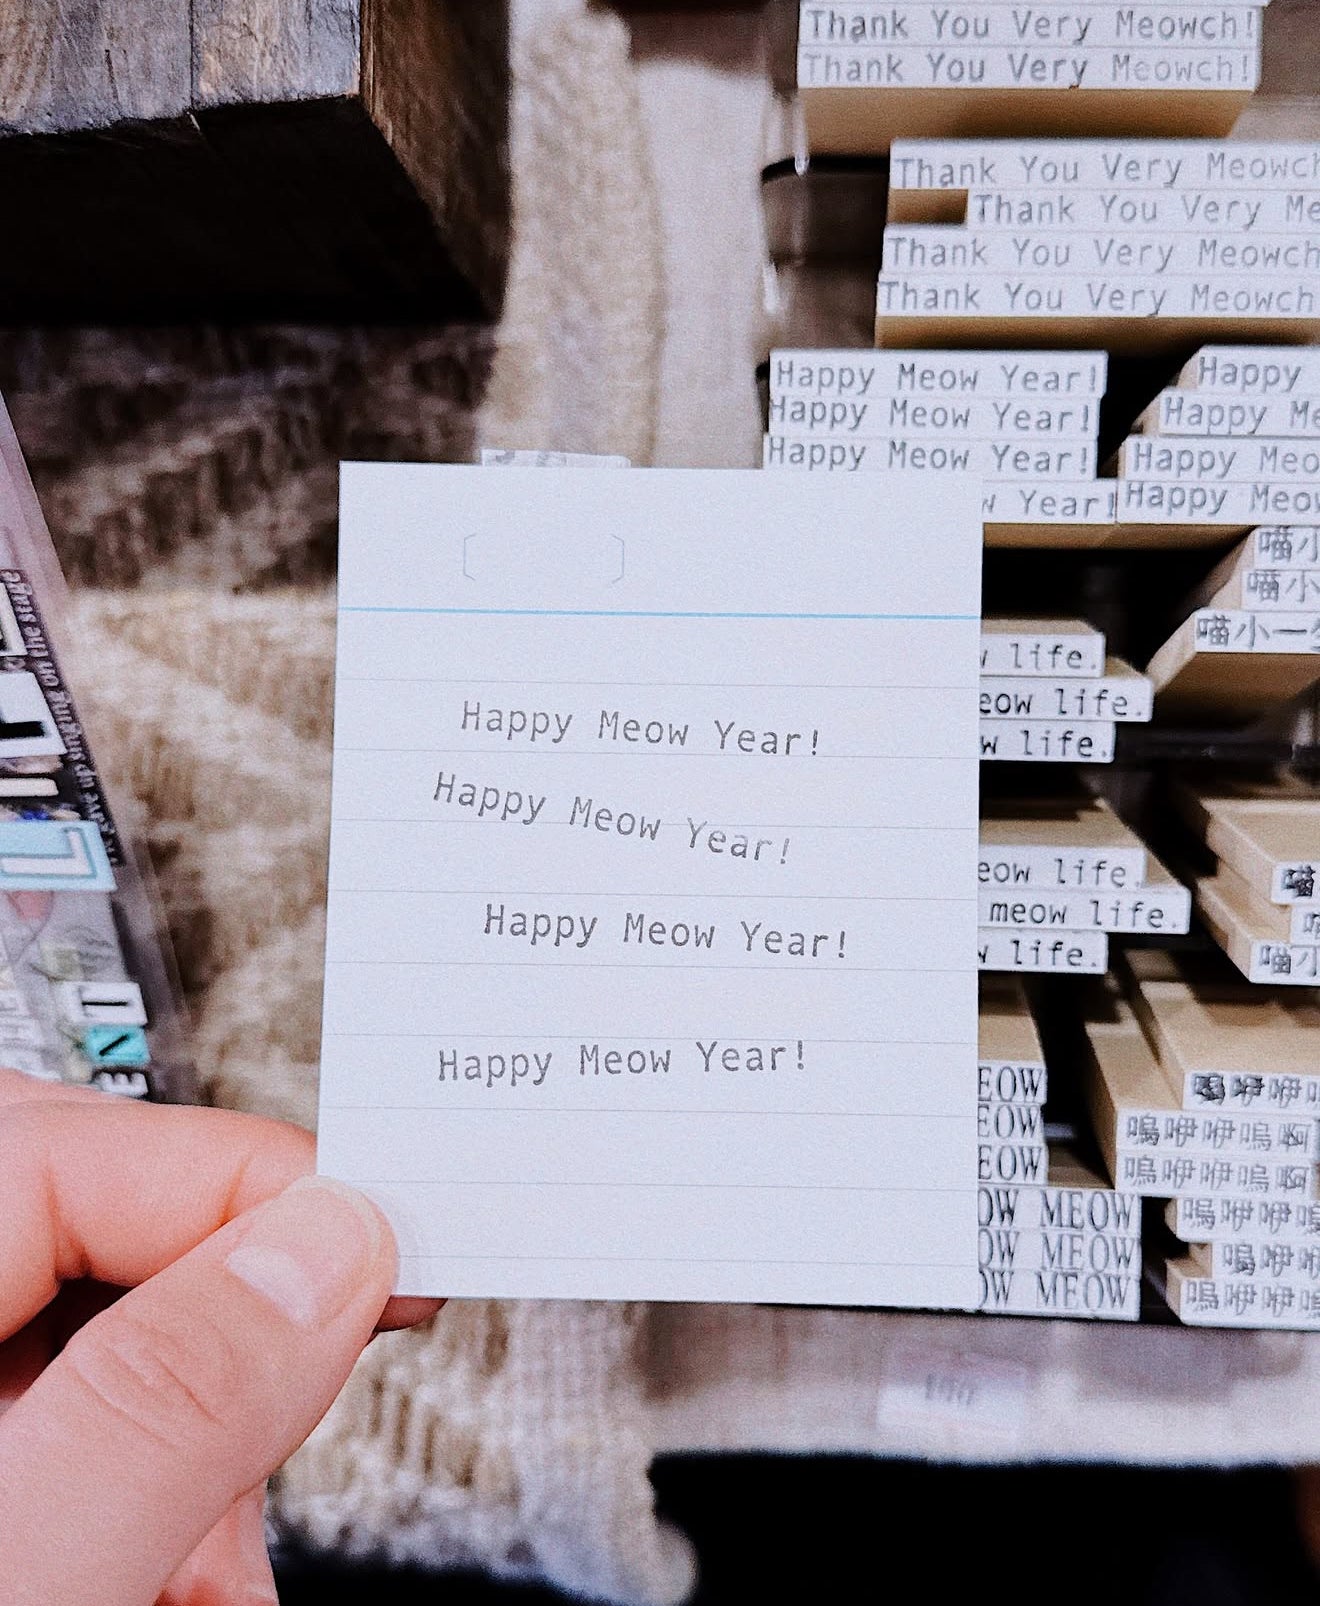 Thank You Very Meowch!
Thank You Very Meowch!
Thank You Very Meowch
Thank You Very Me
Thank You Very Meowch
Thank You Very Meowch
Happy Meow Year!
Happy Meow Year!
Happy Meow Year!
Year!
Happy
Happy Me
Happy Meo
Happy Meow
喵小
喵小
喵小一
life.
eow life.
w life.
Happy Meow Year!
Happy Meow Year!
Happy Meow Year!
Happy Meow Year!
eow life.
meow life.
life.
喵
喵小
EOW
EOW
EOW
OW MEOW
OW MEOW
OW MEOW
嗚咿咿
嗚咿咿嗚啊
嗚咿咿嗚啊
嗚咿咿嗚
嗚咿咿
嗚咿咿嗚
on the stage
L